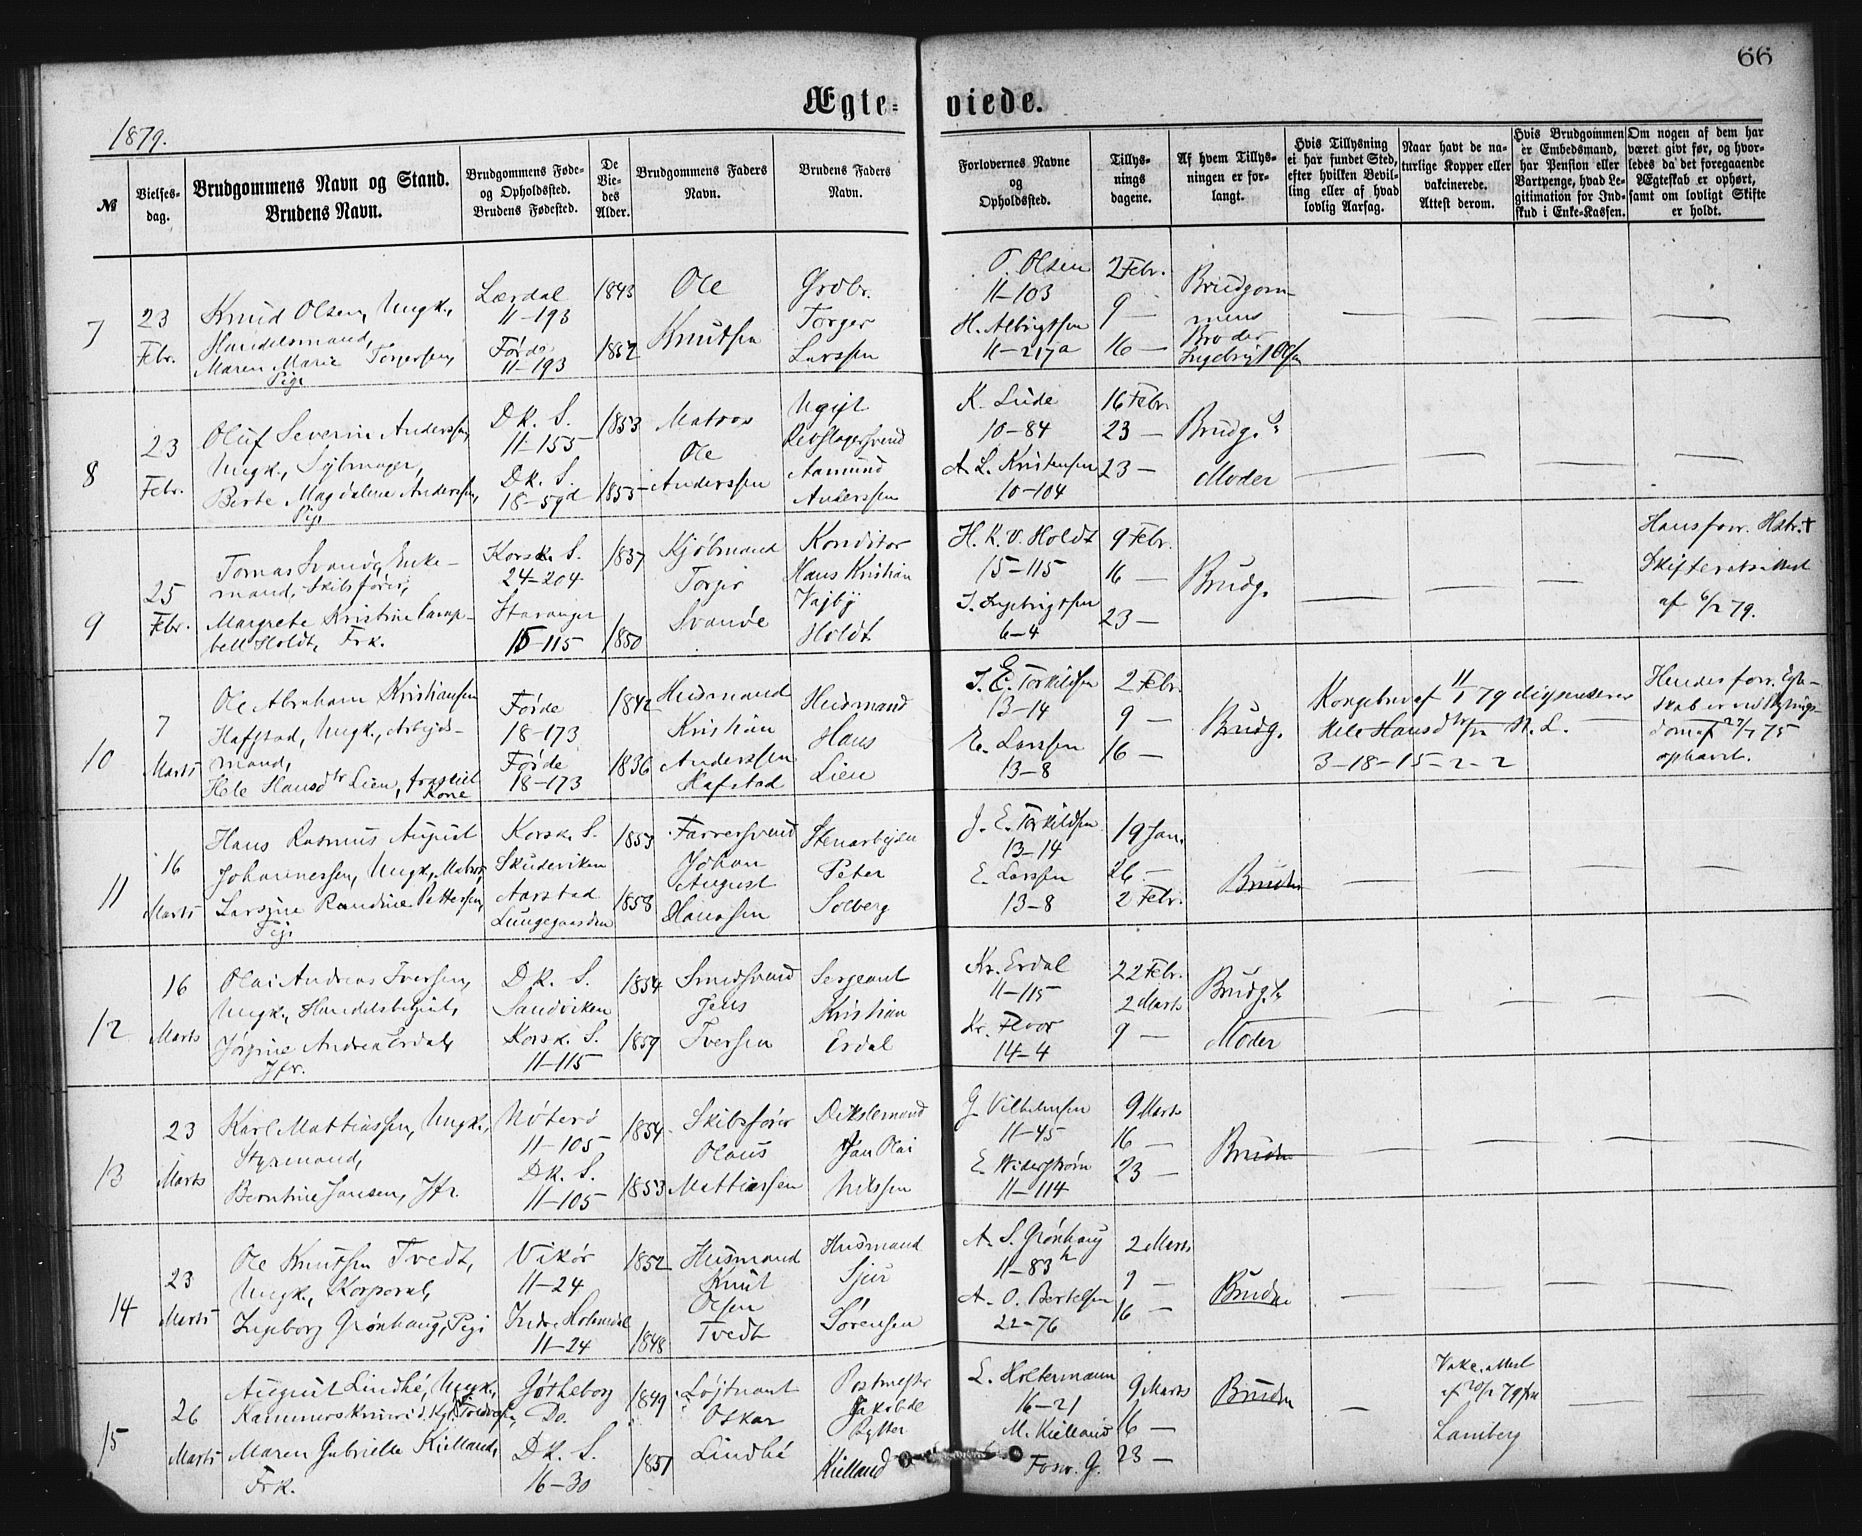 66
Ægte- viede.
1879.
№
Vielses-
dag.
Brudgommens Navn og Stand.
Brudens Navn.
Brudgommens Føde-
og Opholdssted.
Brudens Fødested.
De
Vie-
des
Alder.
Brudgommens Faders
Navn.
Brudens Faders
Navn.
Forlovernes Navne
og
Opholdssted.
Tillys-
nings
dagene.
Af hvem Tillys-
ningen er for-
langt.
Hvis Tillysning
ei har fundet Sted,
efter hvilken Bevil-
ling eller af hvad
lovlig Aarsag.
Naar havt de na-
turlige Kopper eller
vakcinerede.
Attest derom.
Hvis Brudgommen
er Embedsmand,
har Pension eller
Vartpenge, hvad Le-
gitimation for Ind-
skud i Enke-Kassen.
Om nogen af dem har
været givt før, og hvor-
ledes da det foregaaende
Ægteskab er ophørt,
samt om lovligt Skifte
er holdt.
7
23
Febr.
Knud Olsen, Ungk.,
Handelsmand,
Maren Marie Torgersen,
Pige
Lærdal
11-193
Førde
11-193
1843
1852
Ole
Knutsen
Grdbr.
Torger
Larssen
O. Olsen
11-103
H. Albrigtsen
11-217a
2 Febr.
9 —
16 —
Brudgom-
mens
Broder
Ingebrigt Olsen
8
23
Febr.
Oluf Severin Anderssen,
Ungk.,
Berte Magdalene Anderssen,
Pige
Dk. S.
11-155
Dk. S.
18-59d
1853
1855
Matros
Ole
Anderssen
Ugift
Rebslagersvend
Aamund
Anderssen
K. Lude
10-84
A. L. Kristensen
10-104
16 Febr.
23 —
23 —
Brudg.s
Moder
9
25
Febr.
Tomas Svanøe, Enke-
mand, Skibsfører,
Margrete Kristine Camp-
bell Holdt, Frk.
Korsk. S.
24-204
Stavanger
15-115
1837
1850
Kjøbmand
Torger
Svanøe
Konditor
Hans Kristian
Vajby
Holdt
H. K. V. Holdt
15-115
I. Ingebrigtsen
6-4
9 Febr.
16 —
23 —
Brudg.
Hans forr. Hstr. †
Skifteretsattest
af 6/2 79.
10
7
Marts
Ole Abraham Kristiansen
Hafstad, Ungk., Arbejds-
mand,
Hele Hansdtr Lien, fraskilt
Kone
Førde
18-173
Førde
18-173
1842
1836
Husmand
Kristian
Anderssen
Hafstad
Husmand
Hans
Lien
J. E. Torkildsen
13-14
E. Larssen
13-8
2 Febr.
9 —
16 —
Brudg.
Kongebrev af 11/1 79 dispenserer
Hele Hansdtr fra N. L.
3-18-15-2-2
Hendes forr. Egte-
skab er ved Bevilgnings-
dom af 27/7 75
ophævet.
11
16
Marts
Hans Rasmus August
Johannessen, Ungk., Matros,
Larsine Randine Pettersen,
Pige
Korsk. S.
Skuteviken
Aarstad
Lungegaarden
1853
1858
Farversvend
Johan
August
Hanssen
Stenarbejder
Peter
Solberg
J. E. Torkildsen
13-14
E. Larssen
13-8
19 Jan.
26 —
2 Febr.
Bruden
12
16
Marts
Olai Andreas Iversen,
Ungk., Handelsbetjent,
Jørgine Andrea Erdal,
Jfr.
Dk. S.
Sandviken
Korsk. S.
11-115
1854
1859
Smedsvend
Jens
Iversen
Sergeant
Kristian
Erdal
Kr. Erdal
11-115
Kr. Floor
14-4
22 Febr.
2 Marts
9 —
Brudg.s
Moder
13
23
Marts
Karl Mattiassen, Ungk.,
Styrmand,
Berntine Jansen, Jfr.
Nøterø
11-105
Dk. S.
11-105
1854
1853
Skibsfører
Olaus
Mattiassen
Jan Olai
Nilssen
G. Vilhelmsen
11-45
E. Widerstrøm
11-114
9 Marts
16 —
23 —
Bruden
14
23
Marts
Ole Knutsen Tvedt,
Ungk., Korporal,
Ingeborg Grønhaug, Pige
Vikør
11-24
Indre Holmedal
11-24
1852
1848
Husmand
Knut
Olsen
Tvedt
Husmand
Sjur
Sørensen
A. S. Grønhaug
11-83h
A. O. Bertelsen
22-76
2 Marts
9 —
16 —
Bruden
15
26
Marts
August Lindhé, Ungk.,
Maren Gabrielle Kielland,
Frk.
Gøtheborg
Do.
Dk. S.
16-30
1849
1851
Løjtnant
Oskar
Lindhé
Postmester
Jakob de
Rytter
Kielland
L. Holtermann
16-21
M. Kielland
9 Marts
16 —
23 —
Bruden
Vakc. attest
af 20/2 79 fra
Lamberg